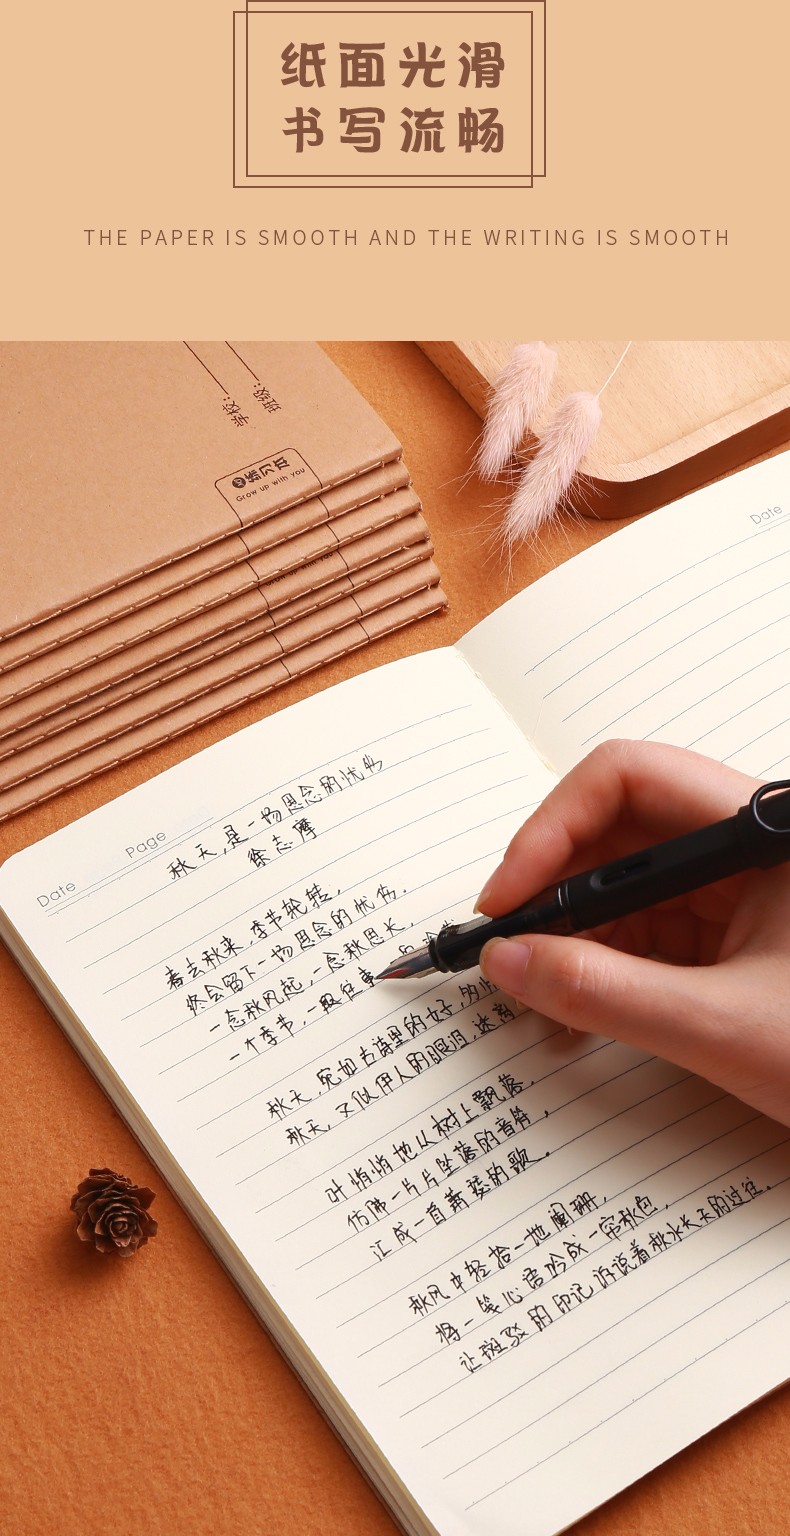 纸面光滑
书写流畅
THE PAPER IS SMOOTH AND THE WRITING IS SMOOTH
学校:
班级:
Grow up with you
Grow up with you
Date
Date
Page
秋天,是一场思念的忧伤
徐志摩
春去秋来,季节轮转,
终会留下一场思念的忧伤.
一念秋风起,一念秋思长,
一个季节,一段往事
秋天,宛如古诗里的女子,
秋天,又似伊人的眼泪,迷离
叶悄悄地从树上飘落,
仿佛一片片坠落的音符,
汇成一首萧瑟的歌.
秋风中轻拾一地阑珊,
将一笺心语吟成一帘秋色,
让斑驳的印记诉说着秋水长天的过往.